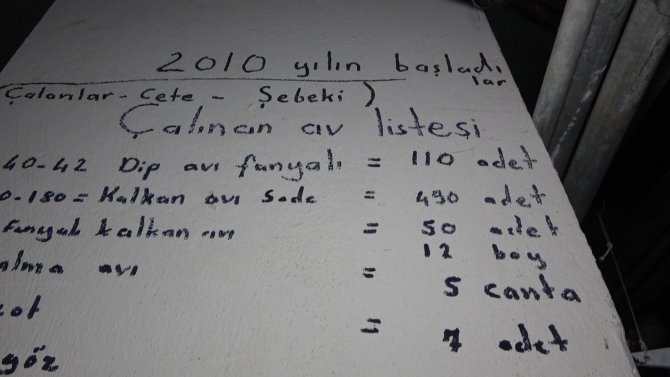 2010 yılın başladı
lar
(Çalanlar - Çete - Şebeki)
Çalınan av listesi
40-42 Dip avı fanyalı = 110 adet
0-180 = Kalkan avı Sade = 490 adet
Fanyalı kalkan avı = 50 adet
12 boy
alma avı = 5 canta
= 7 adet
göz